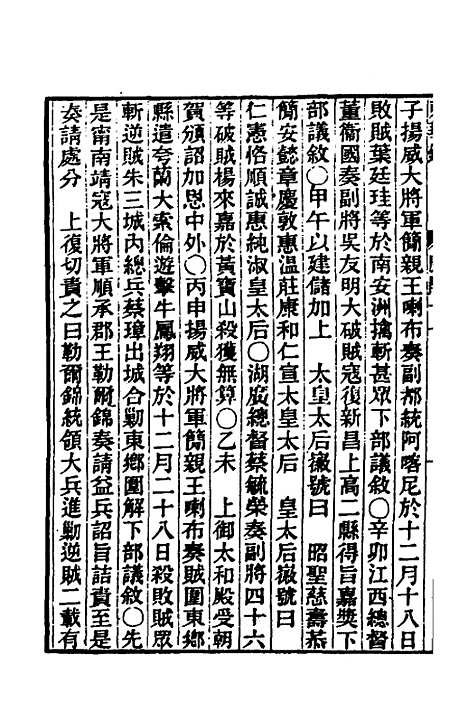 子揚威大將軍簡親王喇布奏副都統阿喀尼於十二月十八日
敗賊葉廷珪等於南安洲擒斬甚眾下部議敘○辛卯江西總督
董衞國奏副將吳友明大破賊寇復新昌上高二縣得旨嘉獎下
部議敘○甲午以建儲加上　太皇太后徽號曰　昭聖慈壽恭
簡安懿章慶敦惠溫莊康和仁宣太皇太后　皇太后徽號曰
仁憲恪順誠惠純淑皇太后○湖廣總督蔡毓榮奏副將四十六
等破賊楊來嘉於黃寶山殺獲無算○乙未　上御太和殿受朝
賀頒詔加恩中外○丙申揚威大將軍簡親王喇布奏賊圍東鄉
縣遣夸蘭大索倫遊擊牛鳳翔等於十二月二十八日殺敗賊眾
斬逆賊朱三城內總兵蔡璋出城合勦東鄉圍解下部議敘○先
是甯南靖寇大將軍順承郡王勒爾錦奏請益兵詔旨詰責至是
奏請處分　上復切責之曰勒爾錦統領大兵進勦逆賊二載有